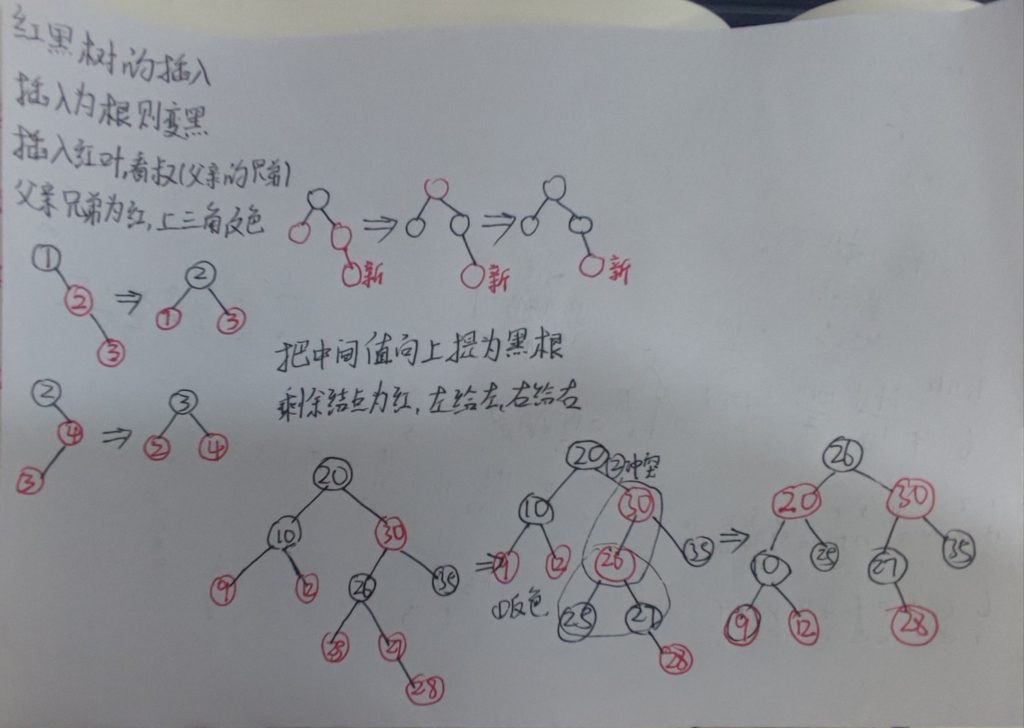 红黑树的插入
插入为根则变黑
插入红叶,看叔(父亲的兄弟)
父亲兄弟为红,上三角反色
新
新
新
1
2
3
2
1
3
把中间值向上提为黑根
剩余结点为红,左给左,右给右
2
4
3
3
2
4
20
10
30
9
12
26
35
25
27
28
20
②冲突
10
30
9
12
26
35
①反色
25
27
28
26
20
30
10
25
27
35
9
12
28